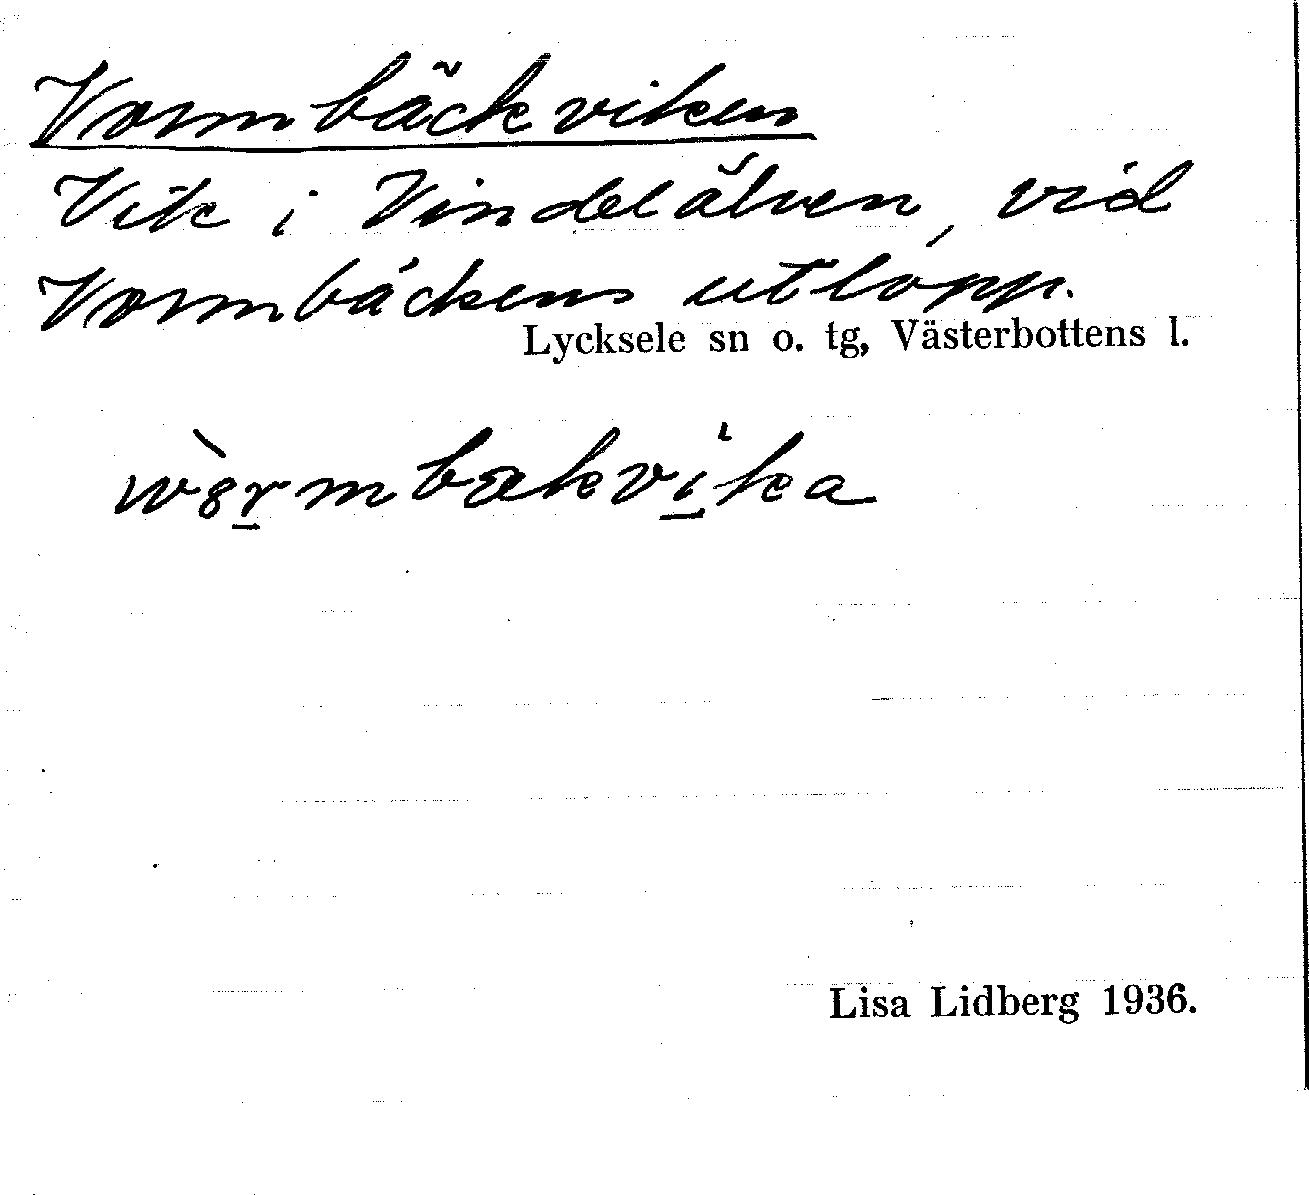 Vormbäckviken
Vik i Vindelälven, vid
Vormbäckens utlopp.
Lycksele sn o. tg, Västerbottens l.
ẁȣr̲mbækvi̲ka
Lisa Lidberg 1936.